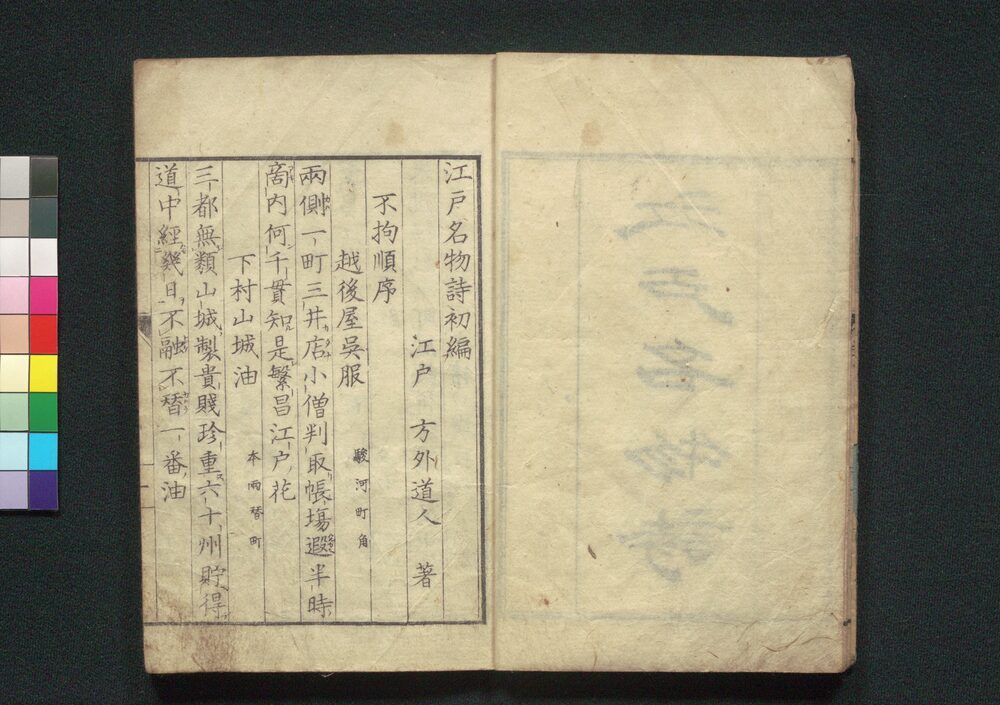 江戸名物詩初編
江戸 方外道人 著
不拘順序
越後屋吳服 駿河町角
兩側一町三井店小僧判取帳塲遐半時
啇内何千貫知是繁昌江戸花
下村山城油 本兩替町
三都無類山城製貴賤珍重六十州貯得
道中經幾日不融不替一番油